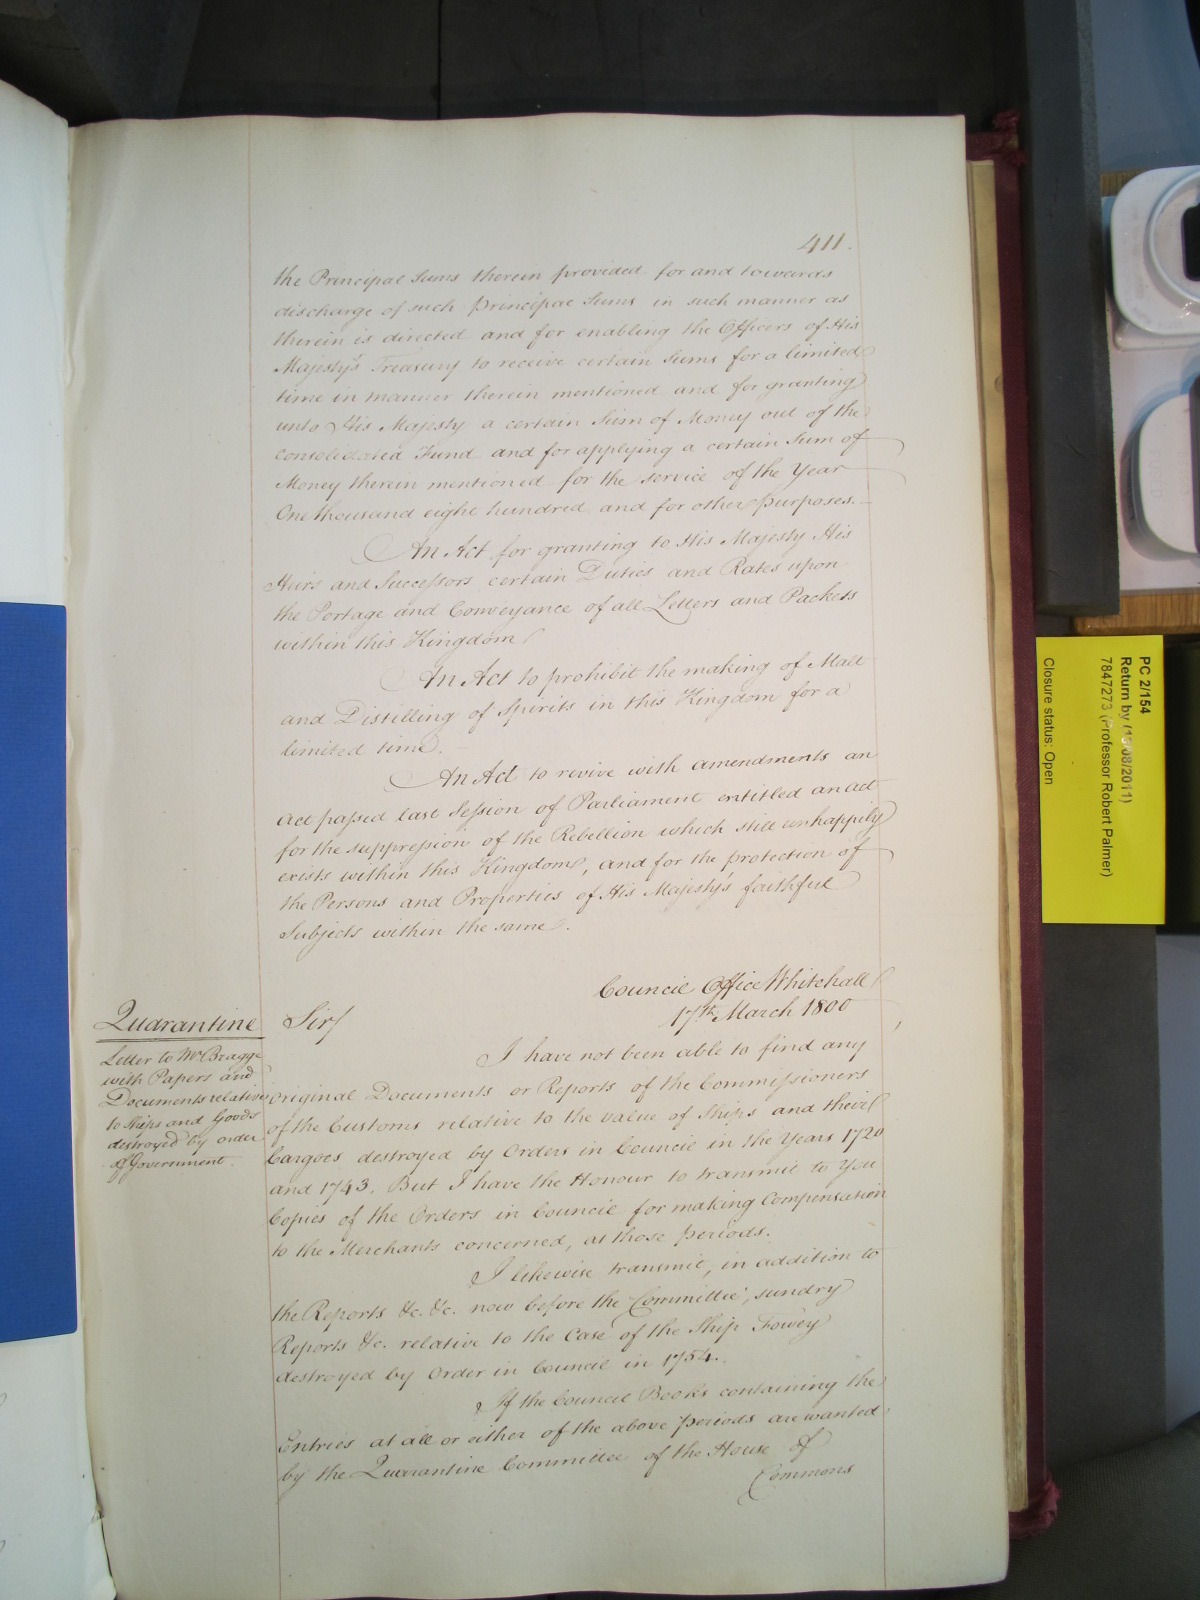 411.
the Principal Sums therein provided for and towards
discharge of such Principal Sums in such manner as
therein is directed and for enabling the Officers of His
Majesty's Treasury to receive certain Sums for a limited
time in manner therein mentioned and for granting
unto His Majesty a certain Sum of Money out of the
Consolidated Fund and for applying a certain Sum of
Money therein mentioned for the service of the Year
One thousand eight hundred and for other purposes.
An Act for granting to His Majesty His
Heirs and Successors certain Duties and Rates upon
the Portage and Conveyance of all Letters and Packets
within this Kingdom
An Act to prohibit the making of Malt
and Distilling of Spirits in this Kingdom for a
limited time.
An Act to revive with amendments an
act passed last Session of Parliament entitled an act
for the suppression of the Rebellion which still unhappily
exists within this Kingdom, and for the protection of
the Persons and Properties of His Majesty's faithful
Subjects within the same.
Council Office Whitehall
17th March 1800
Quarantine
Letter to Mr Bragge
with Papers and
Documents relative
to Ships and Goods
destroyed by order
of Government.
Sir/
I have not been able to find any
original Documents or Reports of the Commissioners
of the Customs relative to the value of Ships and their
Cargoes destroyed by Orders in Council in the Years 1720
and 1743. But I have the Honour to transmit to You
Copies of the Orders in Council for making Compensation
to the Merchants concerned, at those periods.
I likewise transmit, in addition to
the Reports &c. &c. now before the Committee, sundry
Reports &c. relative to the Case of the Ship Fowey
destroyed by Order in Council in 1754.
If the Council Books containing the
Entries at all or either of the above periods are wanted
by the Quarantine Committee of the House of
Commons
PC 2/154
Return by (15/08/2011)
7847273 (Professor Robert Palmer)
Closure status: Open